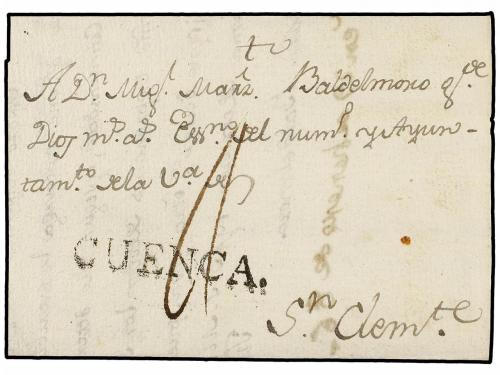 A Dn. Migl. Marz. Baldelmoro qe. de
Dios ms. as. Essno. del numo. y Ayun-
tamto. de la Va. de
CUENCA.
Sn Clemte